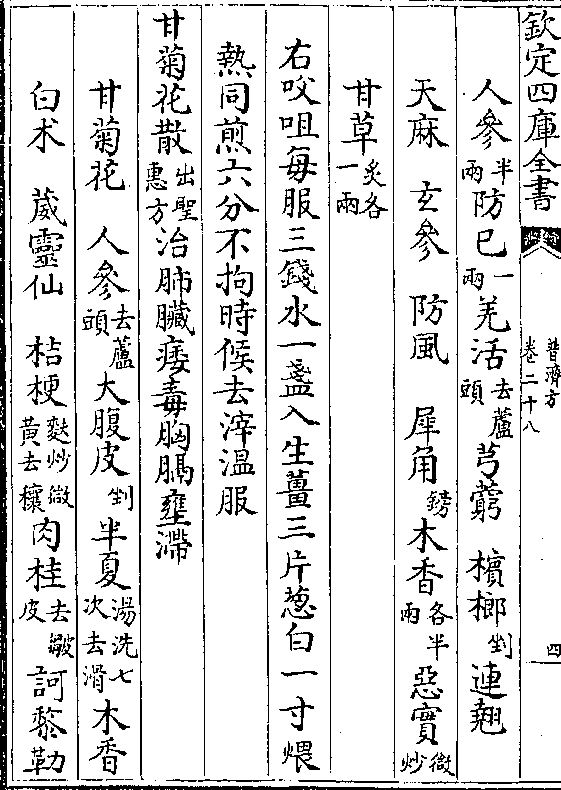 欽定四庫全書
普濟方
卷二十八
四
人參半兩防巳一兩羌活去蘆頭芎藭 檳榔剉連翹
天麻 玄參 防風 犀角鎊木香各半兩惡實微炒
甘草炙各一兩
右㕮咀每服三錢水一盞入生薑三片葱白一寸煨
熱同煎六分不拘時候去滓溫服
甘菊花散出聖惠方治肺臟痿毒胸膈壅滯
甘菊花 人參去蘆頭大腹皮剉半夏湯洗七次去滑木香
白术 葳靈仙 桔梗麩炒微黃去穰肉桂去皴皮訶黎勒